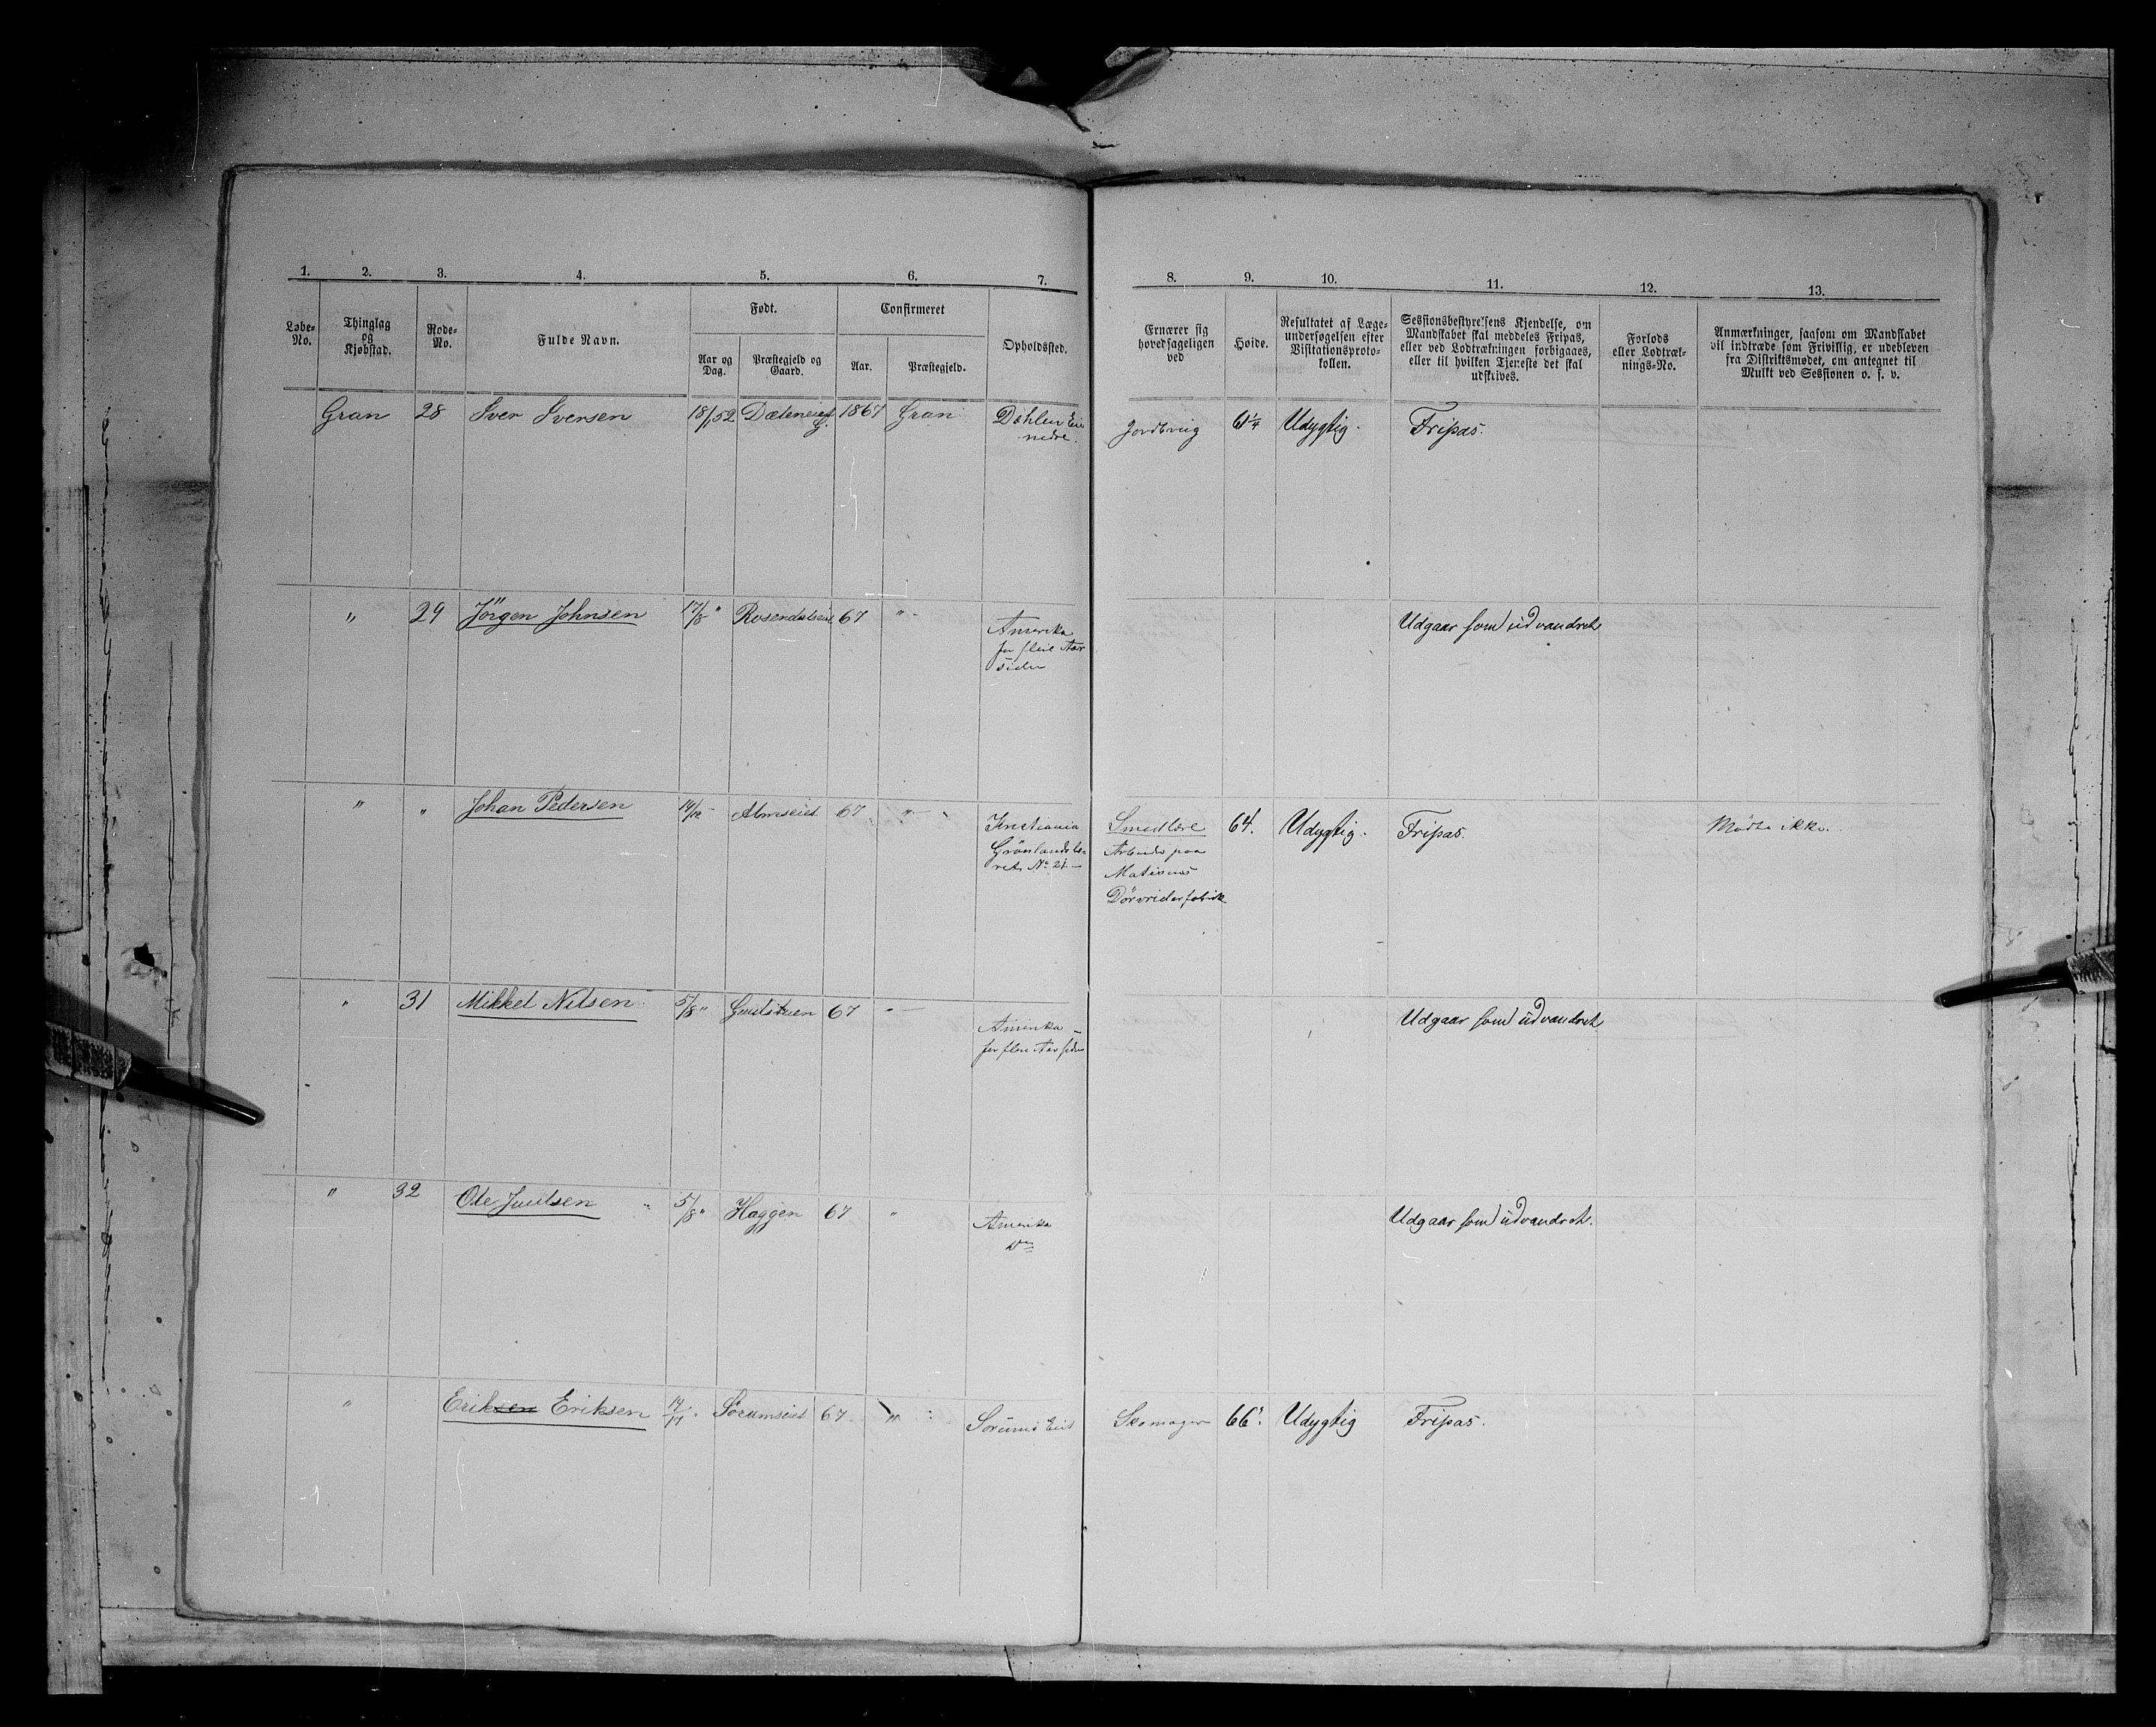 1. 2. 3. 4. 5. 6. 7. 8. 9. 10. 11. 12. 13.
Løbe-No. Thinglag og Kjøbstad. Rode-No. Fulde Navn. Født. Confirmeret Opholdssted.
Aar og Dag. Præstegjeld og Gaard. Aar. Præstegjeld.
Ernærer sig hovedsageligen ved
Høide.
Resultatet af Læge-
undersøgelsen efter
Visitationsproto-
kollen.
Sessionsbestyrelsens Kjendelse, om
Mandskabet skal meddeles Fripas,
eller ved Lodtrækningen forbigaaes,
eller til hvilken Tjeneste det skal
udskrives.
Forlods
eller Lodtræk-
nings-No.
Anmærkninger, saasom om Mandskabet
vil indtræde som Frivillig, er udebleven
fra Distriktsmødet, om antegnet til
Mulkt ved Sessionen o. s. v.
Gran 28 Iver Iversen 18/1 52 1867 Gran Dæhlen Eie
nedre.
Jordbrug 61¼ Udygtig. Fripas.
" 29 Jörgen Johnsen 17/8 " Rosendalseiet 67 " -
Amerika
for flere Aar
siden
Udgaar som udvandret
" " Johan Pedersen 14/12 - Almseiet 67 " -
Kristiania
Grönlandsle-
ret No 21 -
Smedlære 64. Udygtig. Fripas. Mødte ikke.
Arbeider paa
Dörvriderfabrik
" 31 Mikkel Nilsen 5/8 " 67 " -
Amerika -
for flere Aar siden
Udgaar som udvandret
" 32 Ole Juulsen 5/8 " Haggen 67 "
Amerika
Do
Udgaar som udvandret.
" Eriksen Eriksen 14/11 " Sörumseiet 67 "
Sörums Eiet
Skomager 66³. Udygtig Fripas.